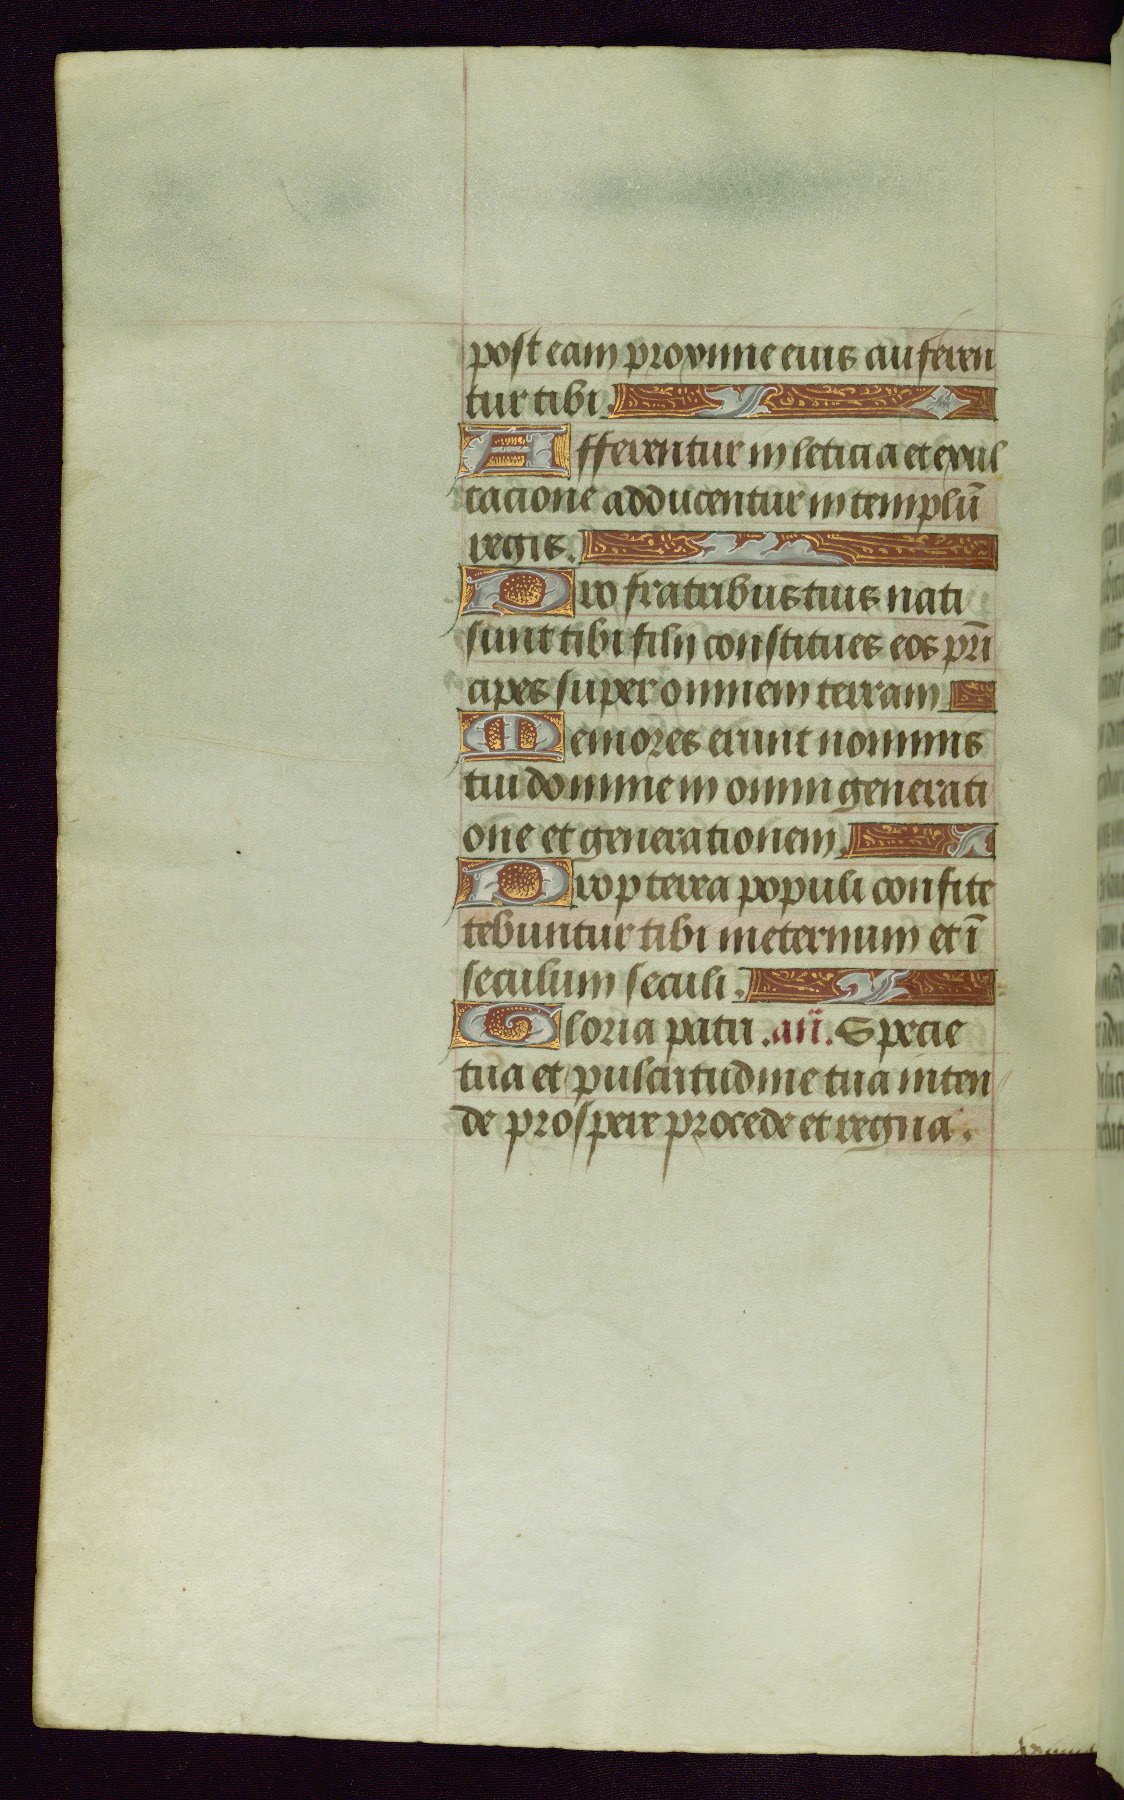 post eam proxime eius auferen
tur tibi.
Afferentur in leticia et exul
tacione adducentur in templū
regis.
Pro fratribus tuis nati
sunt tibi filii constitues eos prī
cipes super omnem terram
Memores erunt nominis
tui domine in omni generati
one et generationem.
Propterea populi confite
tebuntur tibi in eternum et ī
seculum seculi.
Gloria patri .añ. Specie
tua et pulcritudine tua inten
de prospere procede et regna.